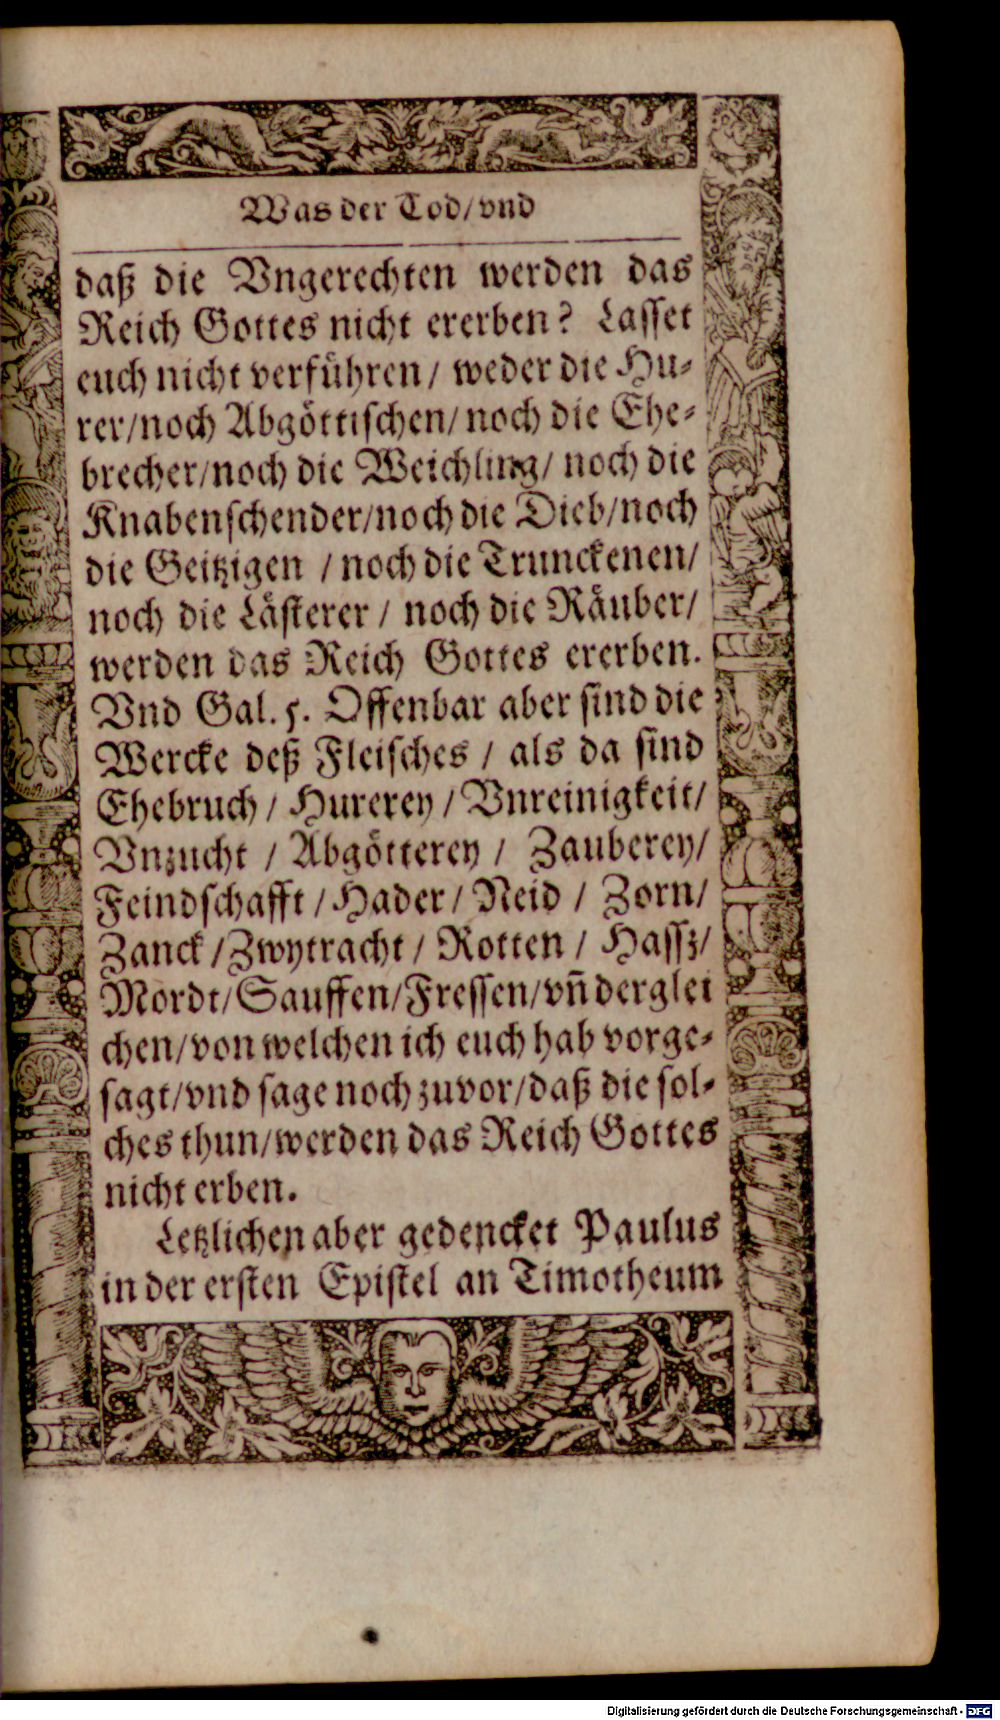 Was der Tod/ vnd
daß die Vngerechten werden das
Reich Gottes nicht ererben? Lasset
euch nicht verführen/ weder die Hu-
rer/noch Abgöttischen/ noch die Ehe-
brecher/noch die Weichling/ noch die
Knabenschender/noch die Dieb/noch
die Geitzigen / noch die Trunckenen/
noch die Lästerer / noch die Räuber/
werden das Reich Gottes ererben.
Vnd Gal. 5. Offenbar aber sind die
Wercke deß Fleisches / als da sind
Ehebruch / Hurerey / Vnreinigkeit/
Vnzucht / Abgötterey / Zauberey/
Feindschafft / Hader / Neid / Zorn/
Zanck / Zwytracht / Rotten / Hassz/
Mordt/Sauffen/Fressen/vñ derglei
chen/von welchen ich euch hab vorge-
sagt/vnd sage noch zuvor/daß die sol-
ches thun/werden das Reich Gottes
nicht erben.
Letzlichen aber gedencket Paulus
in der ersten Epistel an Timotheum
Digitalisierung gefördert durch die Deutsche Forschungsgemeinschaft - DFG